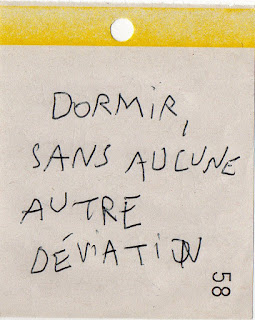 DORMIR,
SANS AUCUNE
AUTRE
DÉVIATION
58